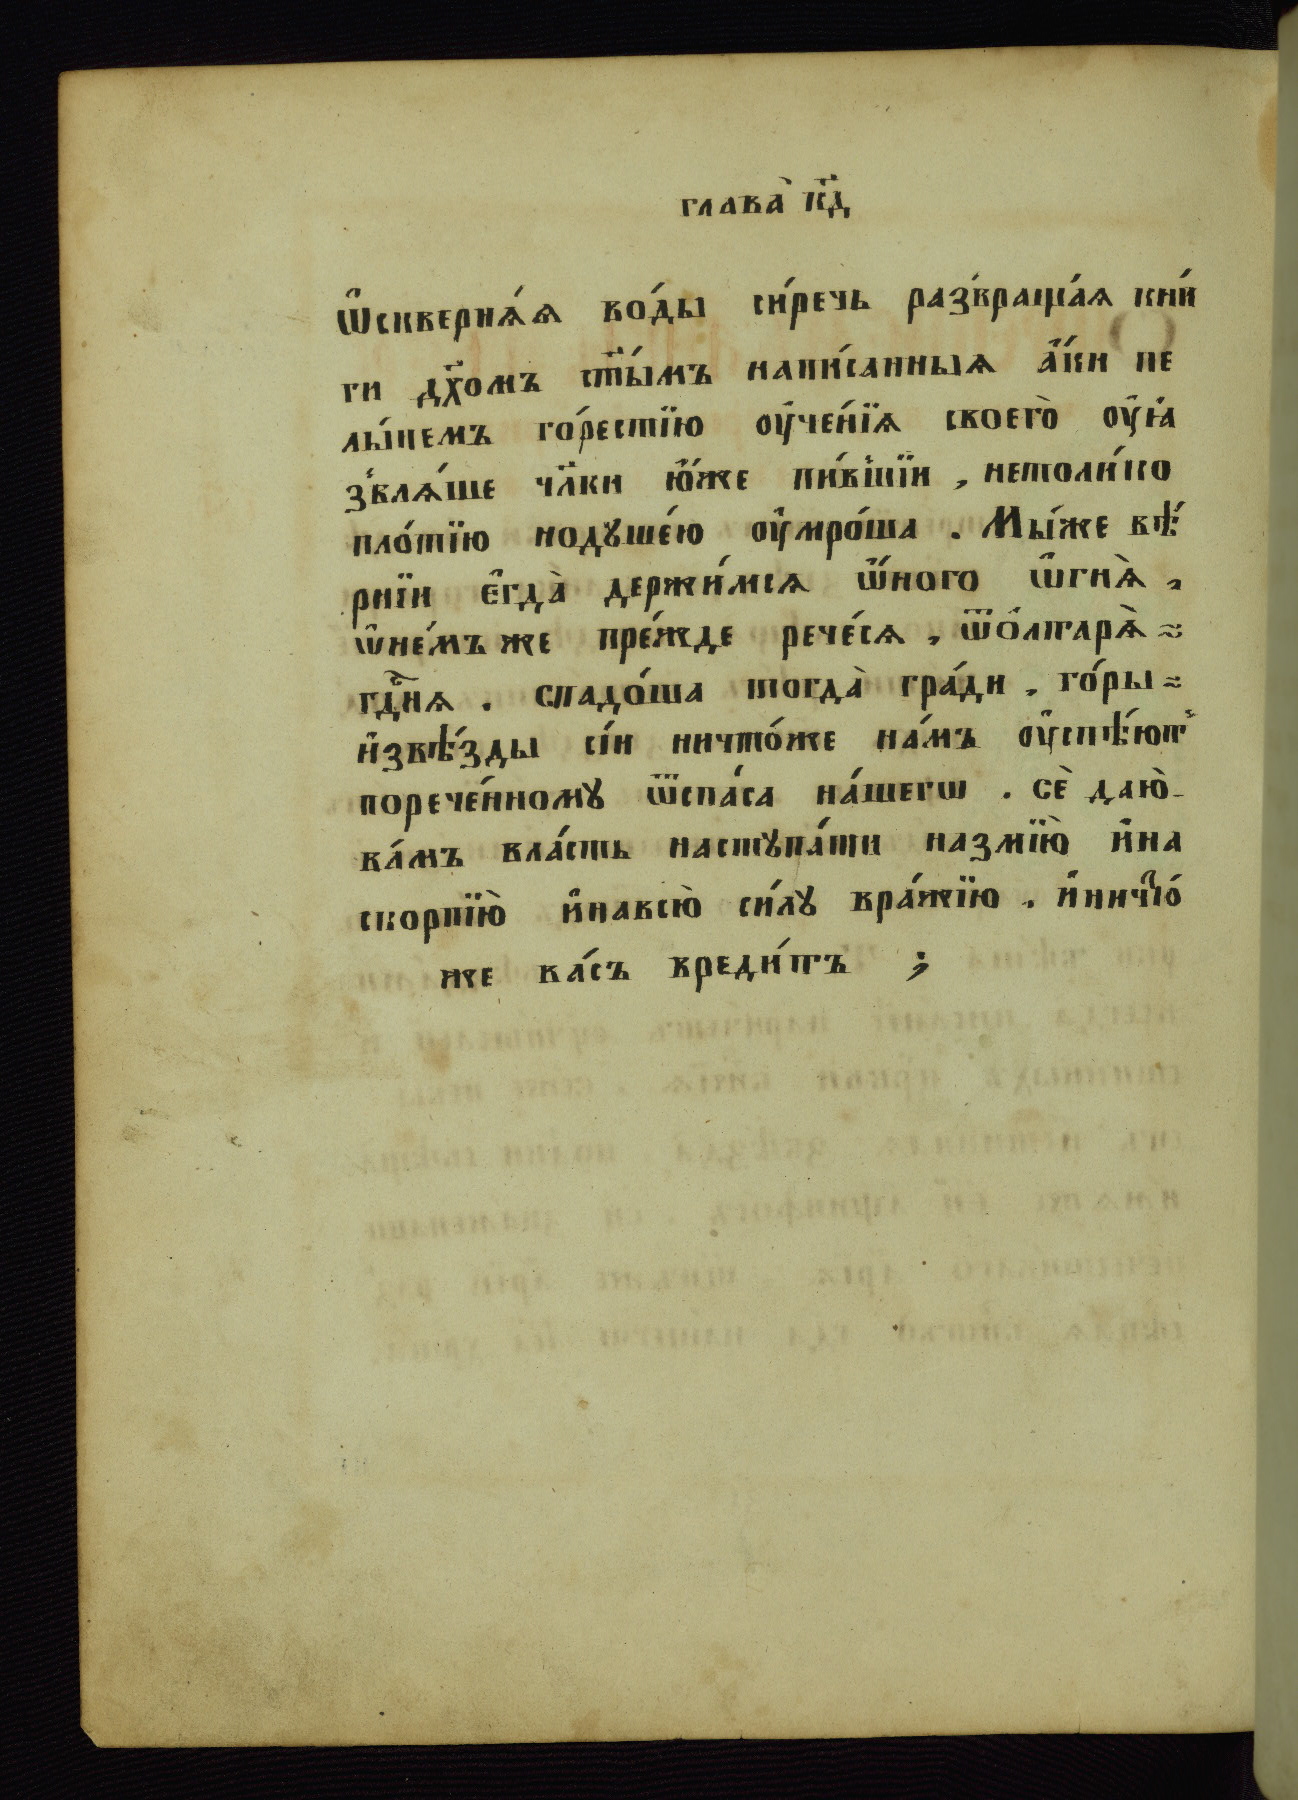 глава̀ к҃д
ѡ҆скверня́ѧ во́ды си́речь разⸯвраща́ѧ кни́
ги дх҃омъ ст҃ы́мъ напи́санныѧ а҆́ки пе
лы́немъ го́рестїю оу҆че́нїѧ своего̀ оу҆ꙗ
зⸯвлѧ́ше чл҃ки ю҆́же пи́вⸯшїи , нетоли́ко
пло́тїю нодꙋше́ю оу҆мро́ша . Мы́же вѣ́
рнїи є҆гда̀ держи́мсѧ ѡ҆́ного ѡ҆гнѧ̀ ,
ѡ҆не́мъ же пре́жде рече́сѧ , ѿо҆лтарѧ̀ ~
гдⷭ҇нѧ . спадо́ша тогда̀ гра́ди , го́ры ~
и҆звѣ́зды сі́и ничто́же на́мъ оу҆спѣ́ютⸯ
порече́нномꙋ ѿспа́са на́шегѡ . сѐ даю̀
ва́мъ вла́сть настꙋпа́ти назмїю̀ и҆на
скорпїю̀ и҆навсю̀ си́лꙋ вра́жїю , и҆ничто́
же ва́съ вреди́тъ ;